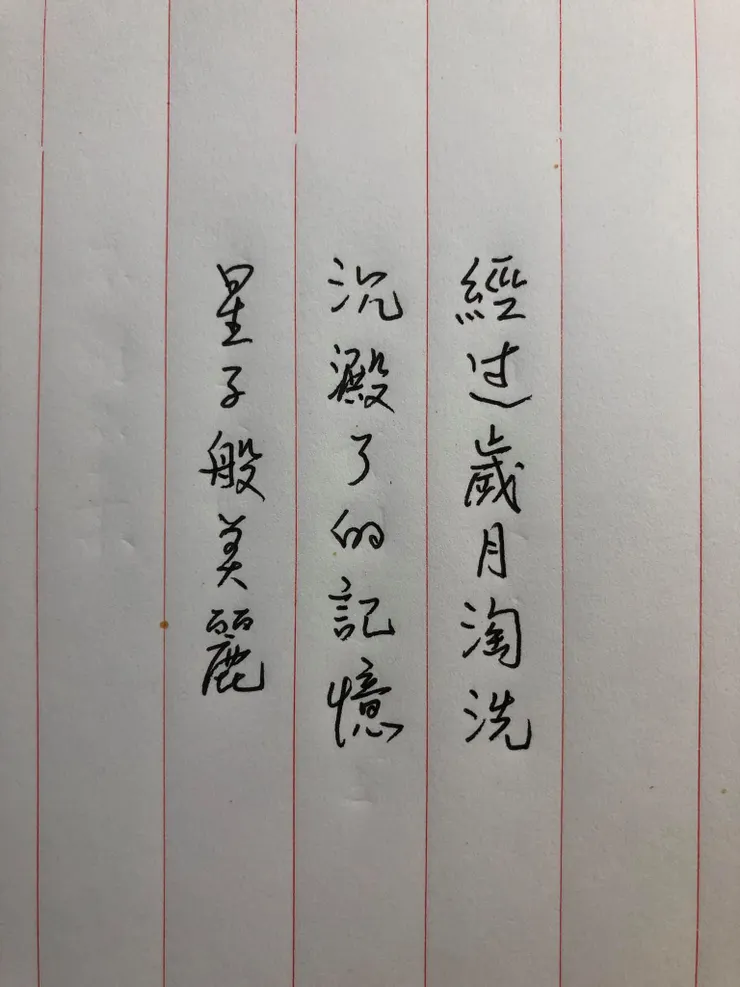 經过歲月淘洗
沉澱了的記憶
星子般美麗